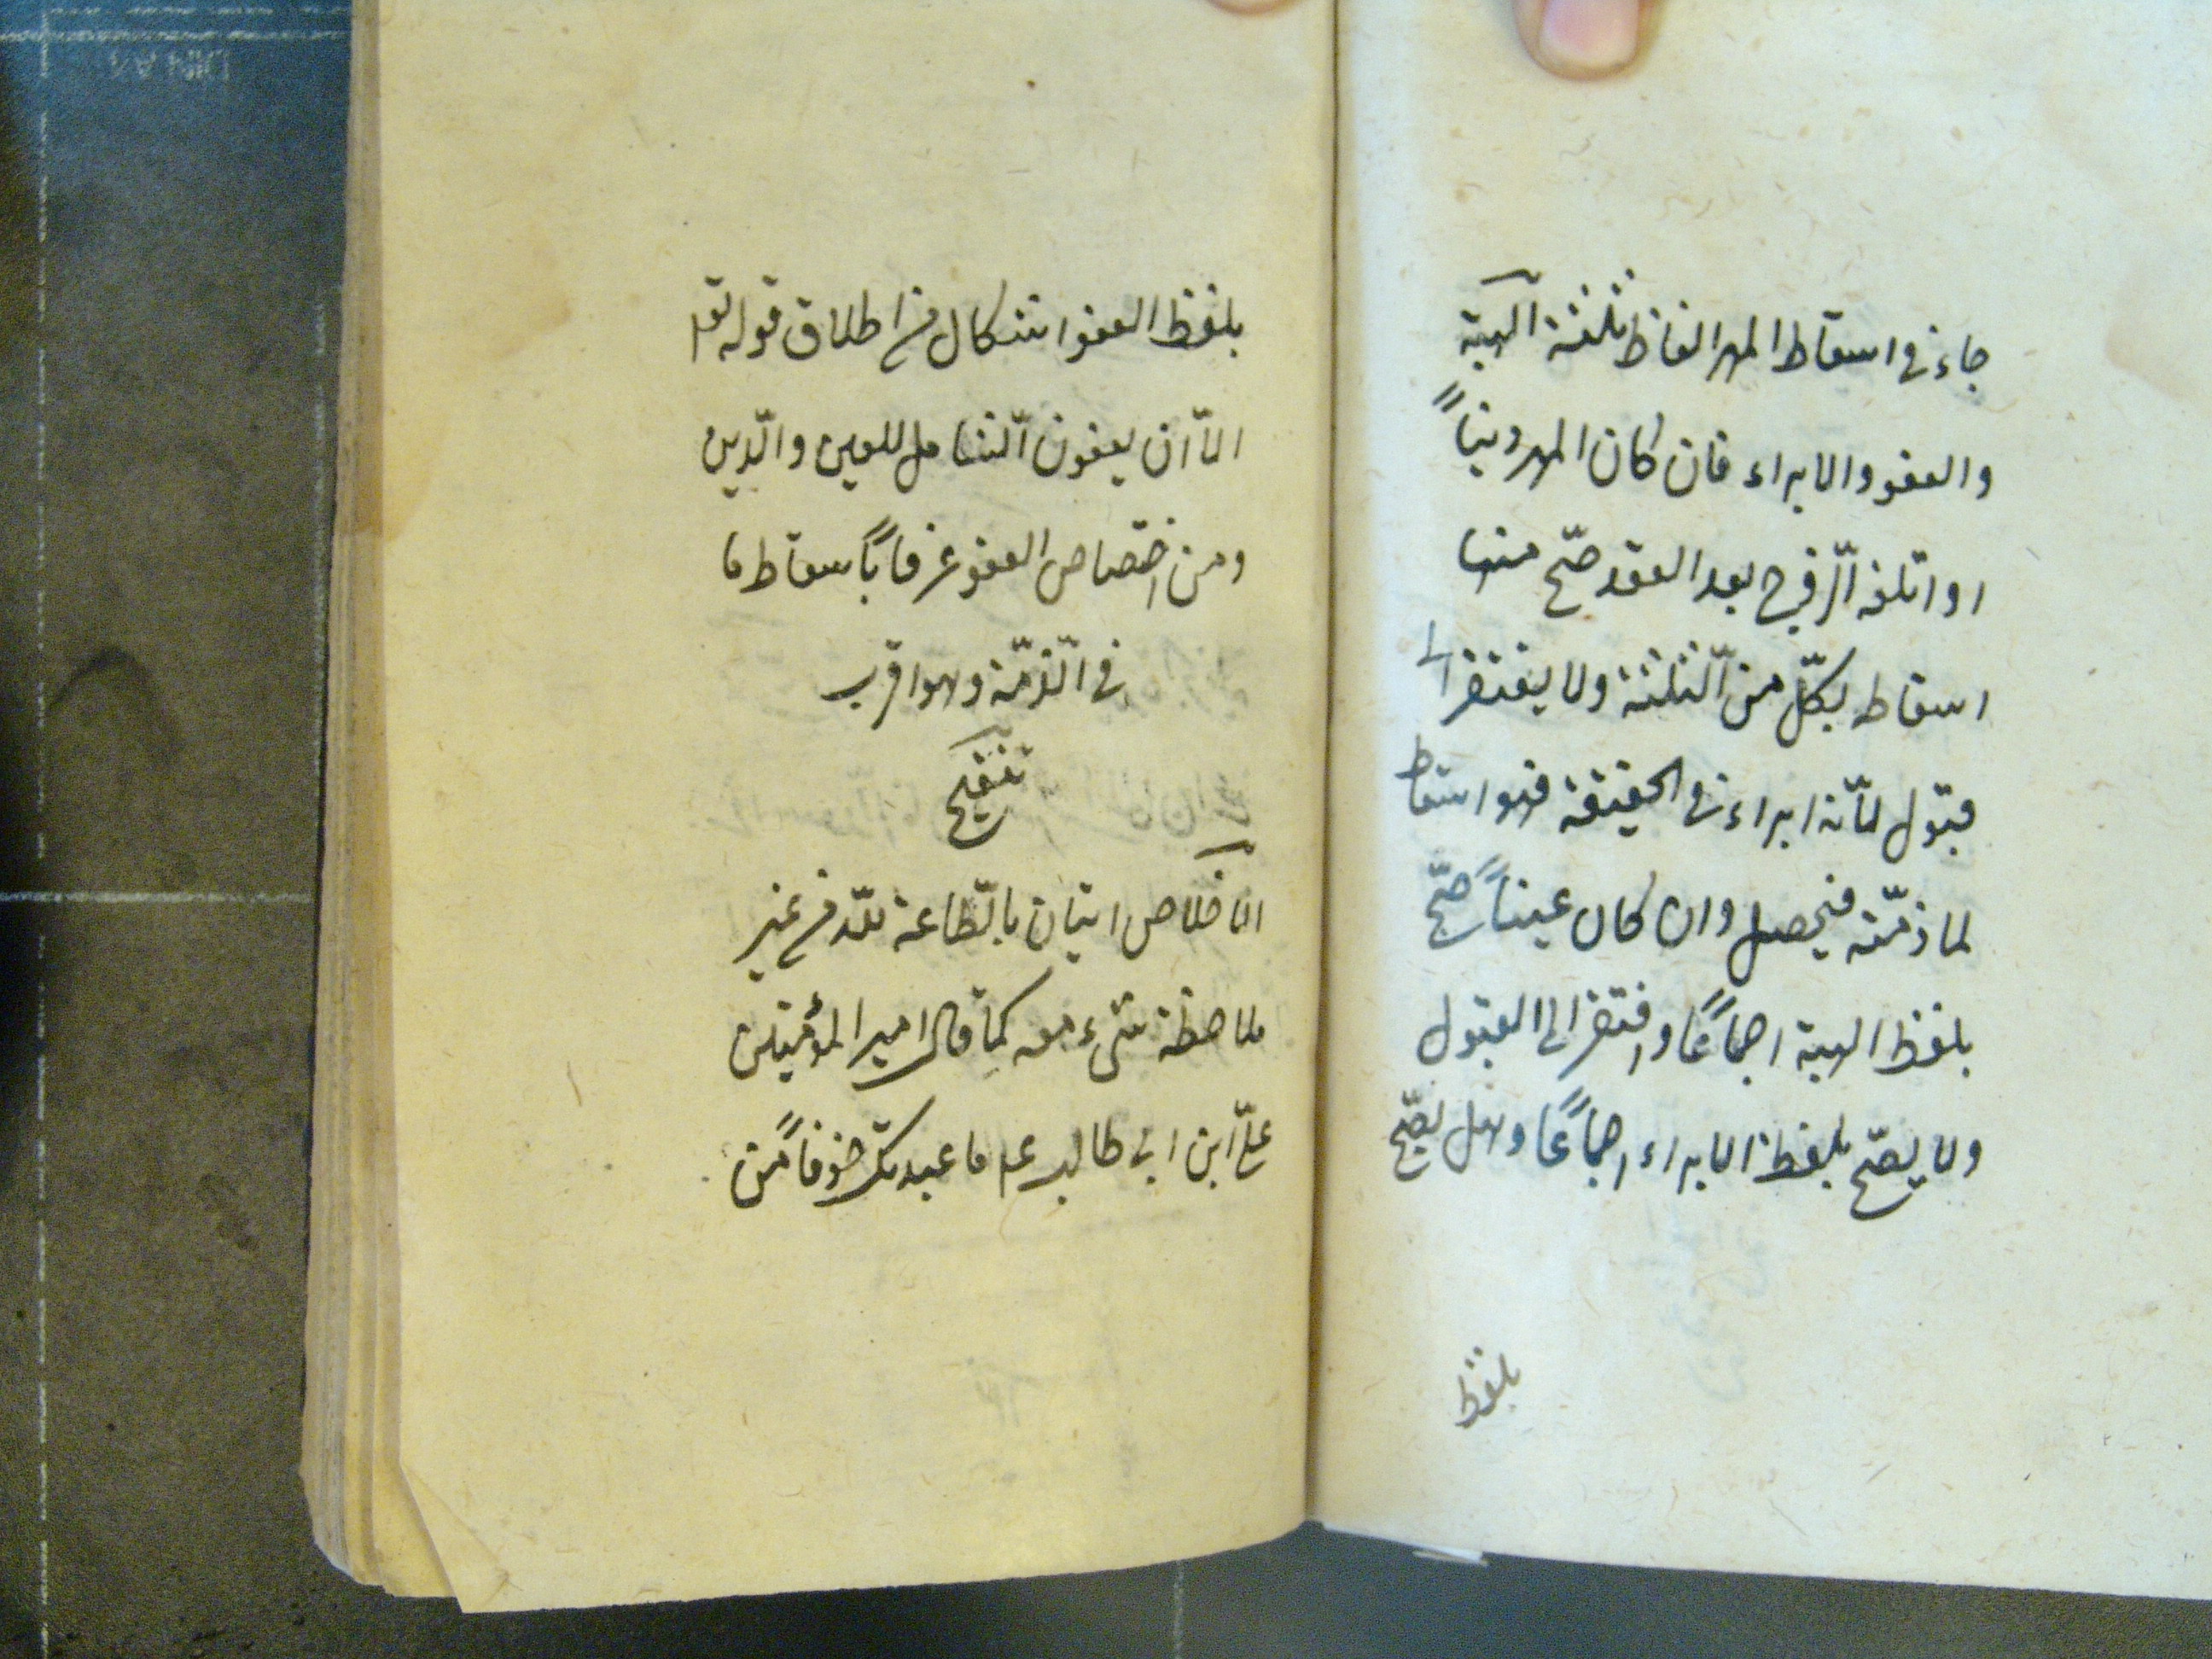 جاء في اسقاط المهر الفاظ ثلثة الهبة
والعفو والابراء فان كان المهر ديناً
او اتلفه الزّوج بعد العقد صحّ منها
اسقاطه بكلّ من الثّلثة ولا يفتقر الى
قبول لانّه ابراء في الحقيقة فهو اسقاط
لما ذمّته فيحصل وان كان عيناً صحّ
بلفظ الهبة اجماعًا وافتقر الى القبول
ولا يصحّ بلفظ الابراء اجماعًا وهل يصحّ
بلفظ
بلفظ العفو اشكال من اطلاق قوله تعا
الّا ان يعفون الشّامل للعين والدّين
ومن اختصاص العفو عرفاً باسقاط ما
في الذّمّة وهو اقرب
تنقيح
الاخلاص اتيان بالطّاعة للّه من غير
ملاحظة شیء معه كما قال امير المؤمنين
علیّ ابن ابی طالب عم ما عبدتك خوفاً من